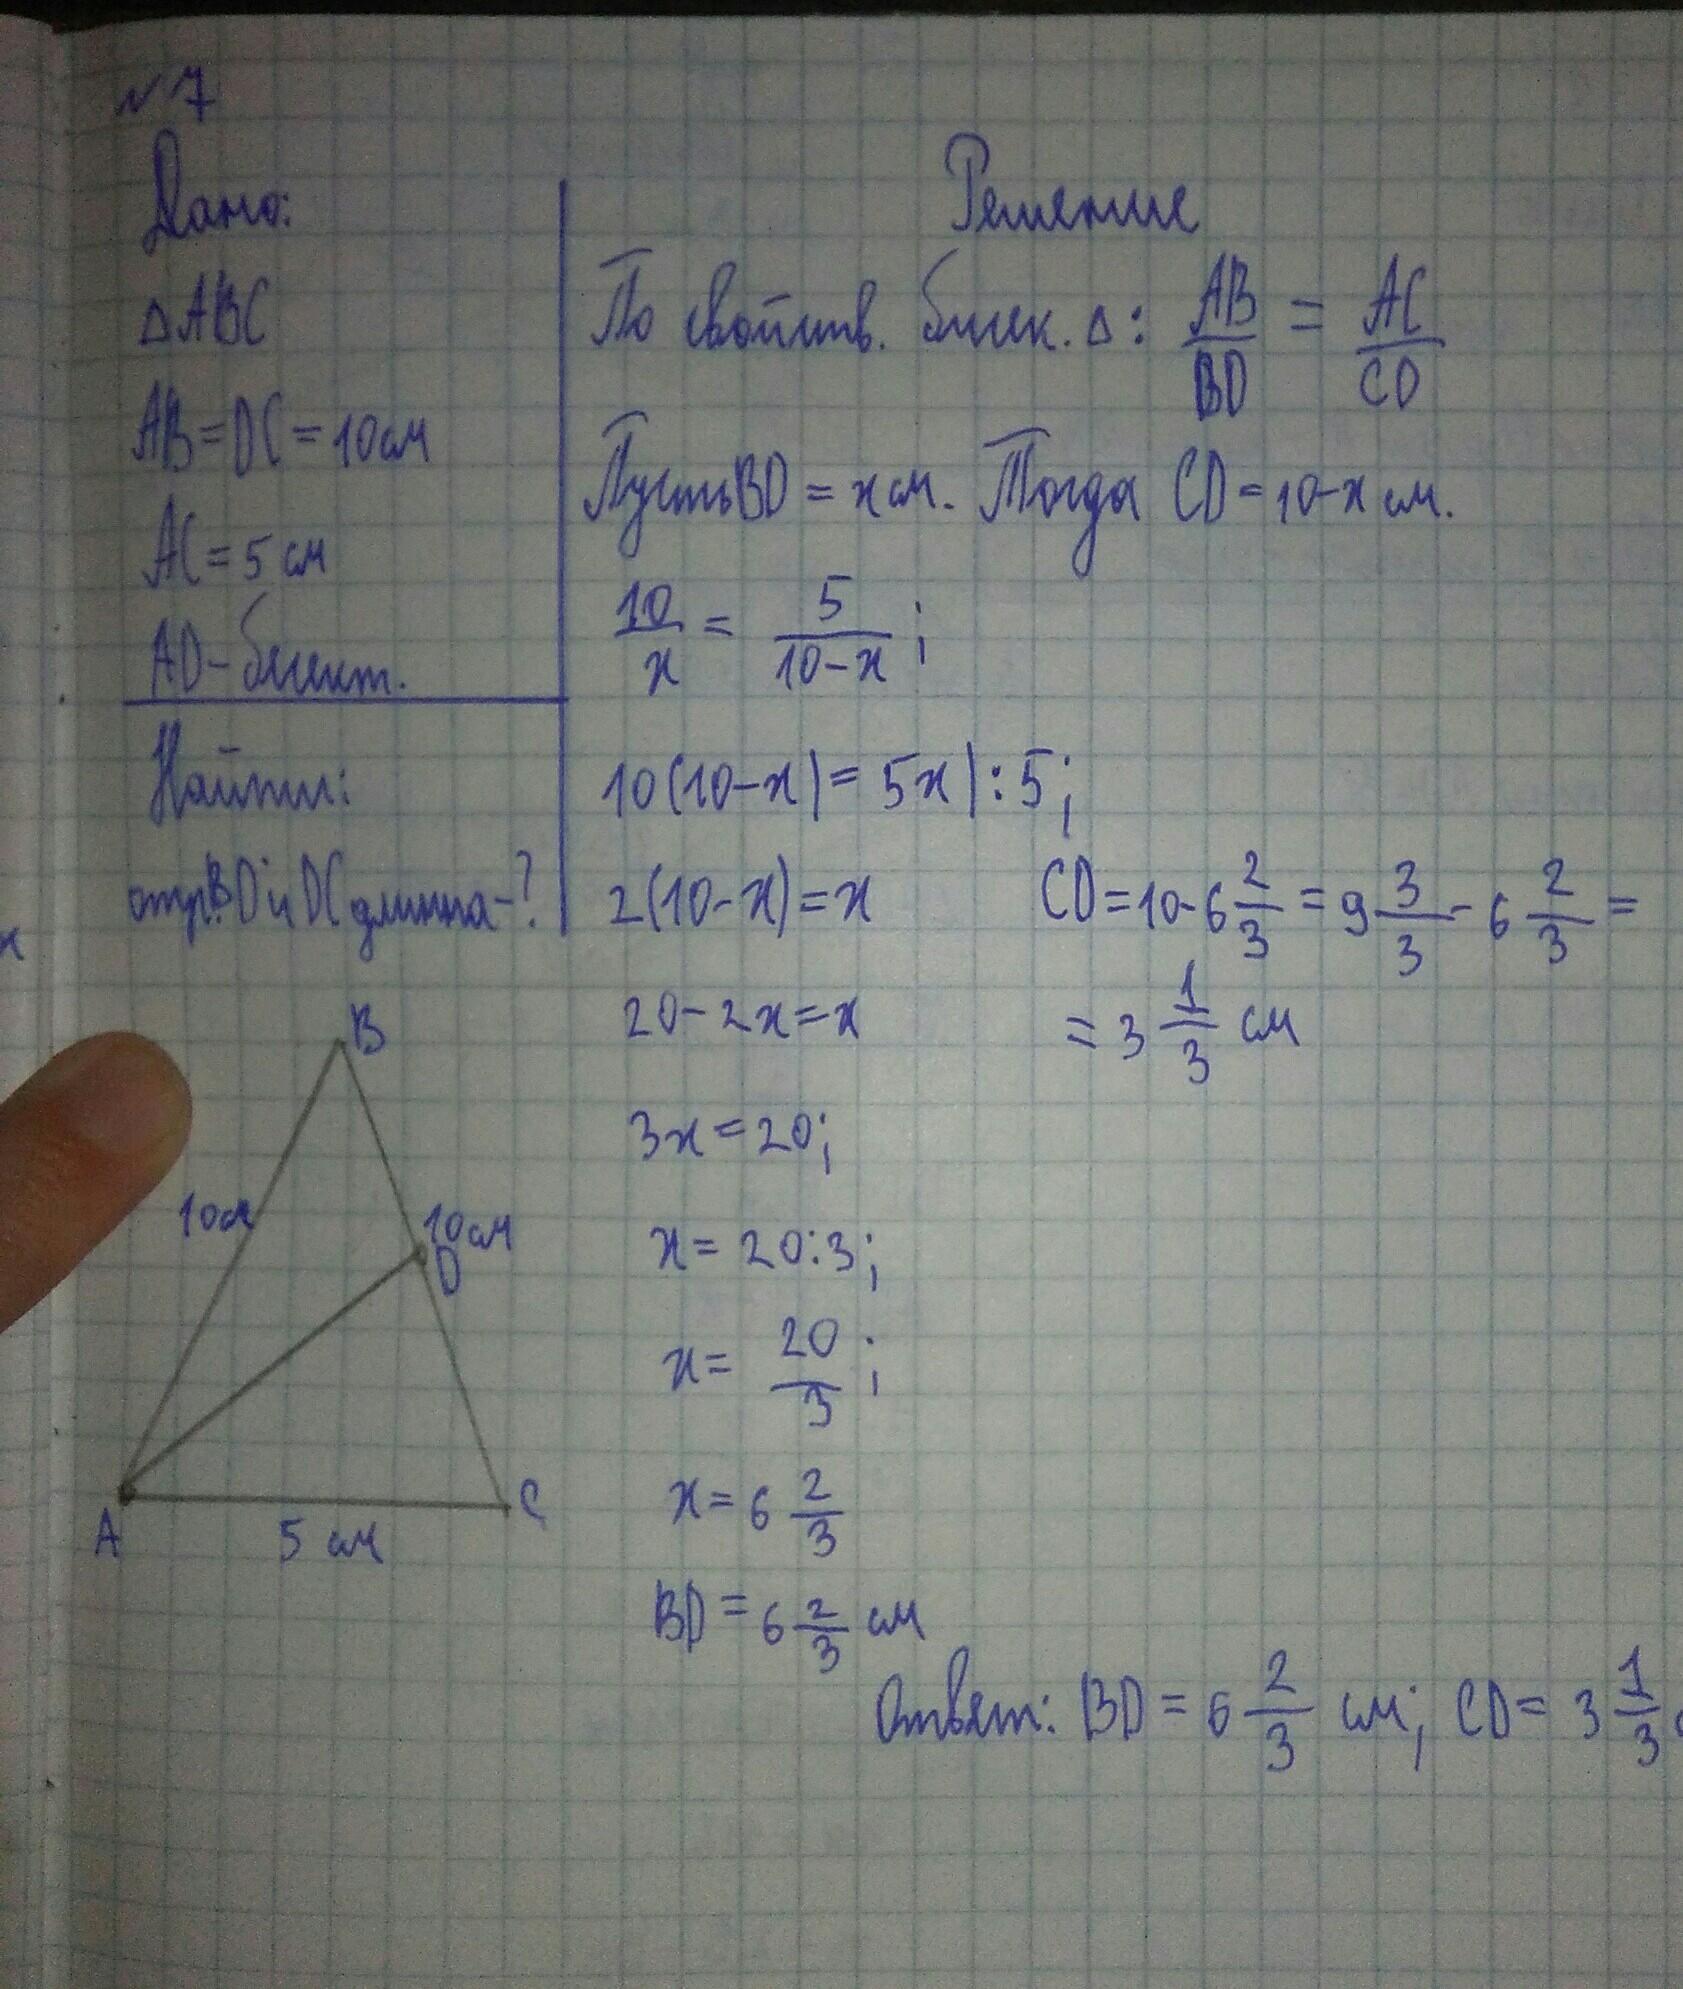 №7
Дано:
△ABC
AB=DC=10см
AC=5см
AD-бисект.
Найти:
отр.BD и DC длинна-?
Решение
По свойств. бисек. △: AB/BD = AC/CD
Пусть BD = x см. Тогда CD=10-x см.
10/x = 5/10-x;
10(10-x)=5x|:5;
2(10-x)=x
20-2x=x
3x=20;
x=20:3;
x=20/3;
x=6 2/3
BD=6 2/3 см
CD=10-6 2/3=9 3/3-6 2/3=
=3 1/3 см
Ответ: BD=6 2/3 см; CD=3 1/3
B
10см
10см
D
A
5 см
C
x